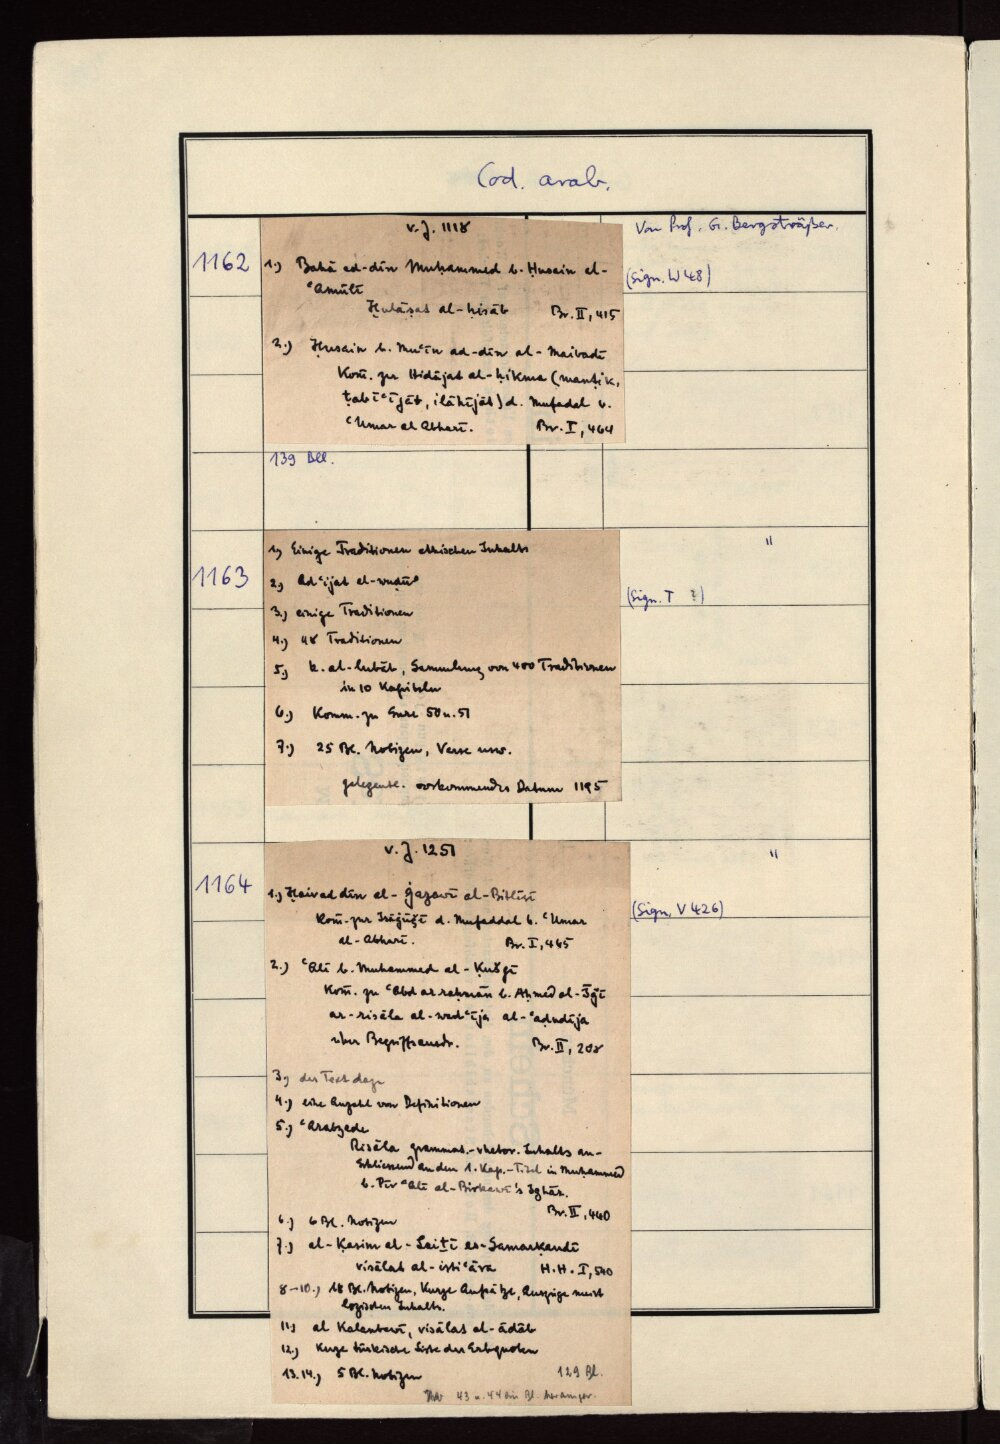 Cod. arab.
Von Prof. G. Bergsträßer.
1162
v. J. 1118
1.) Bahā ed-dīn Muḥammed b. Ḥusain el-
ʿAmūlī
Ḫulāṣat al-ḥisāb Br. II, 415
(Sign. W 48)
2.) Ḥusain b. Muʿīn ad-dīn al-Maibadī
Kom̄. zur Hidājat al-ḥikma (manṭik,
ṭabīʿījāt, ilāhījāt) d. Mufaḍal b.
ʿUmar al Abharī. Br. I, 464
139 Bll.
1163
"
(Sign. T ?)
1.) Einige Traditionen ethischen Inhalts
2.) Adʿijat el-wuḍūʾ
3.) einige Traditionen
4.) 48 Traditionen
5.) k. al-lubāb, Sammlung von 400 Traditionen
in 10 Kapiteln
6.) Komm. zu Sure 50 u. 51
7.) 25 Bl. Notizen, Verse usw.
gelegentl. vorkommendes Datum 1195
1164
"
(Sign. V 426)
v. J. 1251
1.) Ḫairaddīn al-ġazawī al-Bitlīsī
Kom̄. zur Īsāġūǧī d. Mufaḍḍal b. ʿUmar
al-Abharī. Br. I, 465
2.) ʿAlī b. Muhammed al-Ḳušgī
Kom̄. zu ʿAbd ar raḥmān b. Aḥmed al-Īǧī
ar-risāla al-wadʿīja al-ʿaḍudīja
über Begriffsausdr. Br. II, 208
3.) der Text dazu
4.) eine Anzahl von Definitionen
5.) ʿArabzede
Risāla grammat.-rhetor. Inhalts an-
schliessend an den 1. Kap.-Titel in Muhammed
b. Pīr ʿAlī al-Birkawī's Iẓhār.
Br. II, 440
6.) 6 Bl. Notizen
7.) al-Ḳasim al-Laiṯī es-Samarḳandī
risālat al-istiʿāra H.H. I, 540
8–10.) 18 Bl. Notizen, Kurze Aufsätze, Auszüge meist
logischen Inhalts.
11.) al Kalanbawī, risālat al-ādāb
12.) Kurze türkische Liste der Erbquoten
13. 14.) 5 Bl. Notizen 129 Bl.
43 u. 44 ein Bl.